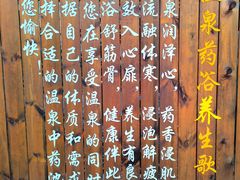 温泉药谷养生歌
泉润泽心，药香浸肌
流融体寒，浸泡解疲
放入心扉，养生有良
浴舒筋骨，健康伴此
您在享受温泉的同时
据自己的体质和需求
择合适的温泉中药池
您愉快！